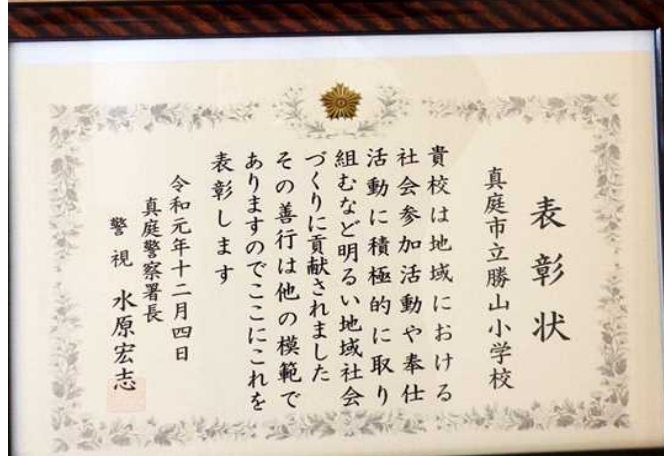 表彰状
真庭市立勝山小学校
貴校は地域における
社会参加活動や奉仕
活動に積極的に取り
組むなど明るい地域社会
づくりに貢献されました
その善行は他の模範で
ありますのでここにこれを
表彰します
令和元年十二月四日
真庭警察署長
警視 水原宏志